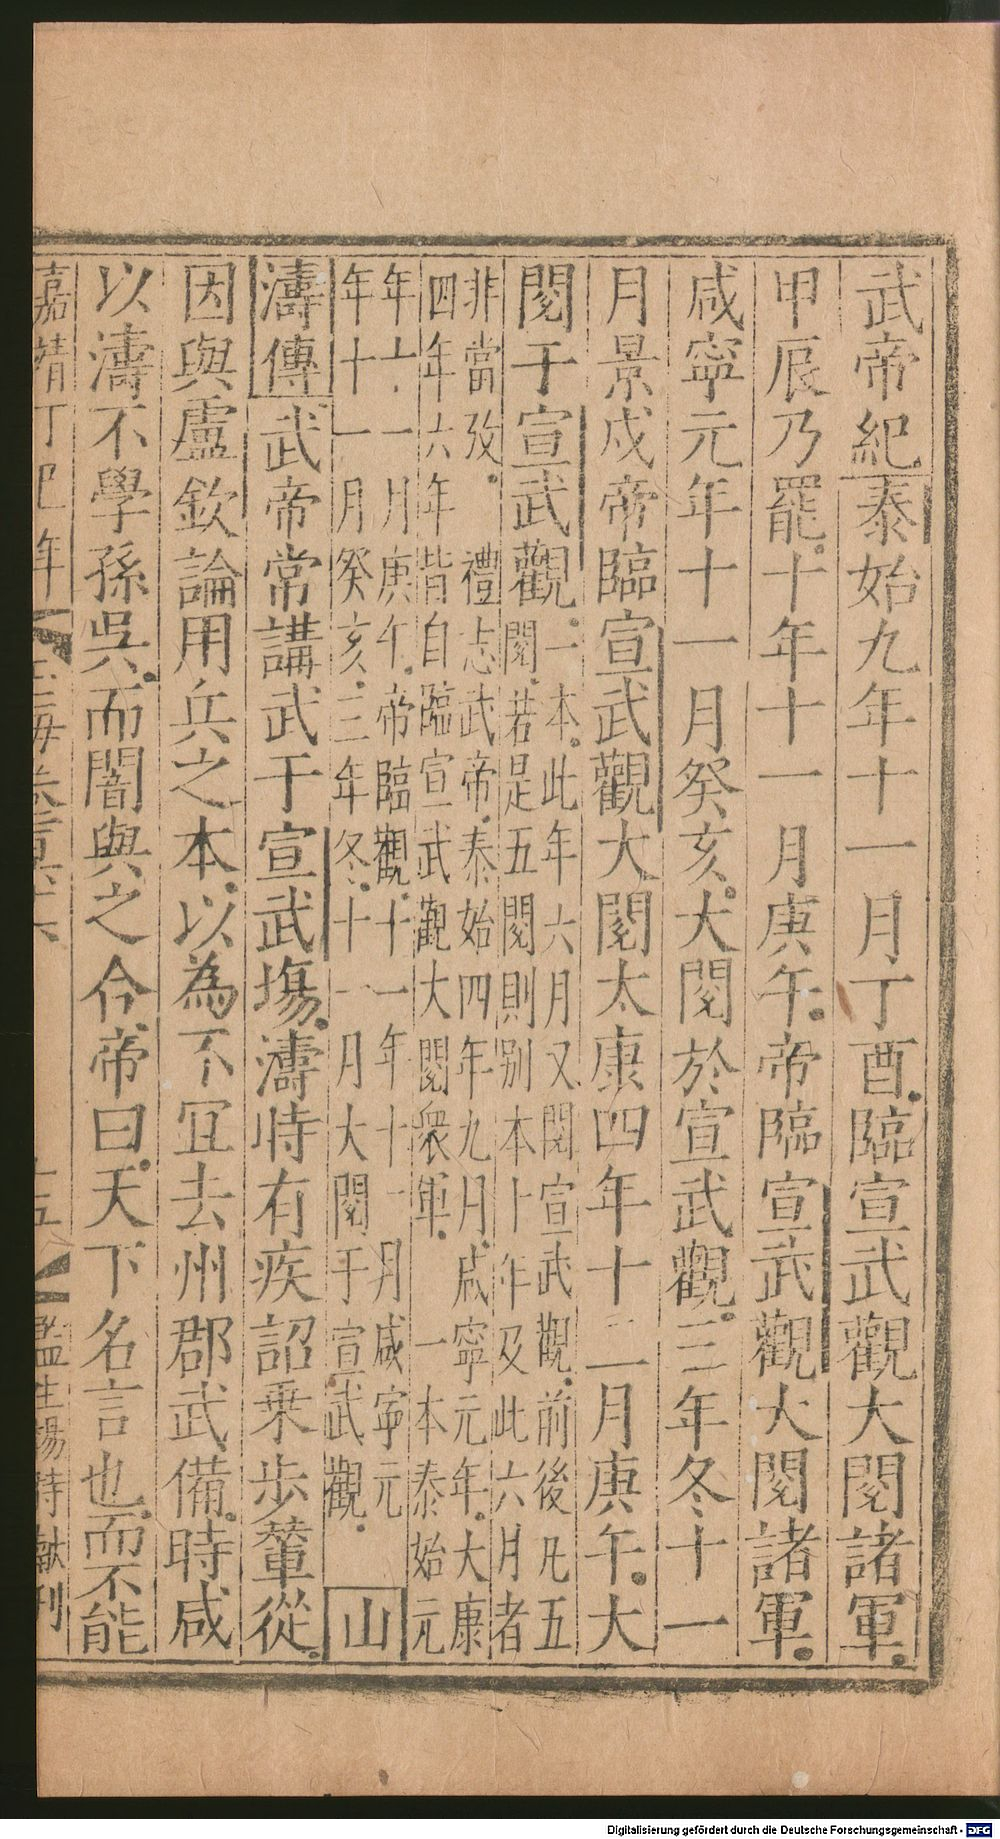 武帝紀泰始九年十一月丁酉臨宣武觀大閱諸軍
甲辰乃罷十年十一月庚午帝臨宣武觀大閱諸軍
咸寧元年十一月癸亥大閱於宣武觀三年冬十一
月景戍帝臨宣武觀大閱太康四年十二月庚午大
閱于宣武觀一本此年六月又閱宣武觀前後凡五
閱若是五閱則别本十年及此六月者
非當攷禮志武帝泰始四年九月咸寧元年大康
四年六年皆自臨宣武觀大閱衆軍一本泰始元
年十一月庚午帝臨觀十一年十一月咸寧元
年十一月癸亥三年冬十一月大閱于宣武觀山
濤傳武帝常講武于宣武塲濤時有疾詔乗歩輦從
因與盧欽論用兵之本以為不冝去州郡武備時咸
以濤不學孫吳而闇與之合帝曰天下名言也而不能
嘉靖丁巳年
十五
監生楊待獻刊
Digitalisierung gefördert durch die Deutsche Forschungsgemeinschaft - DFG